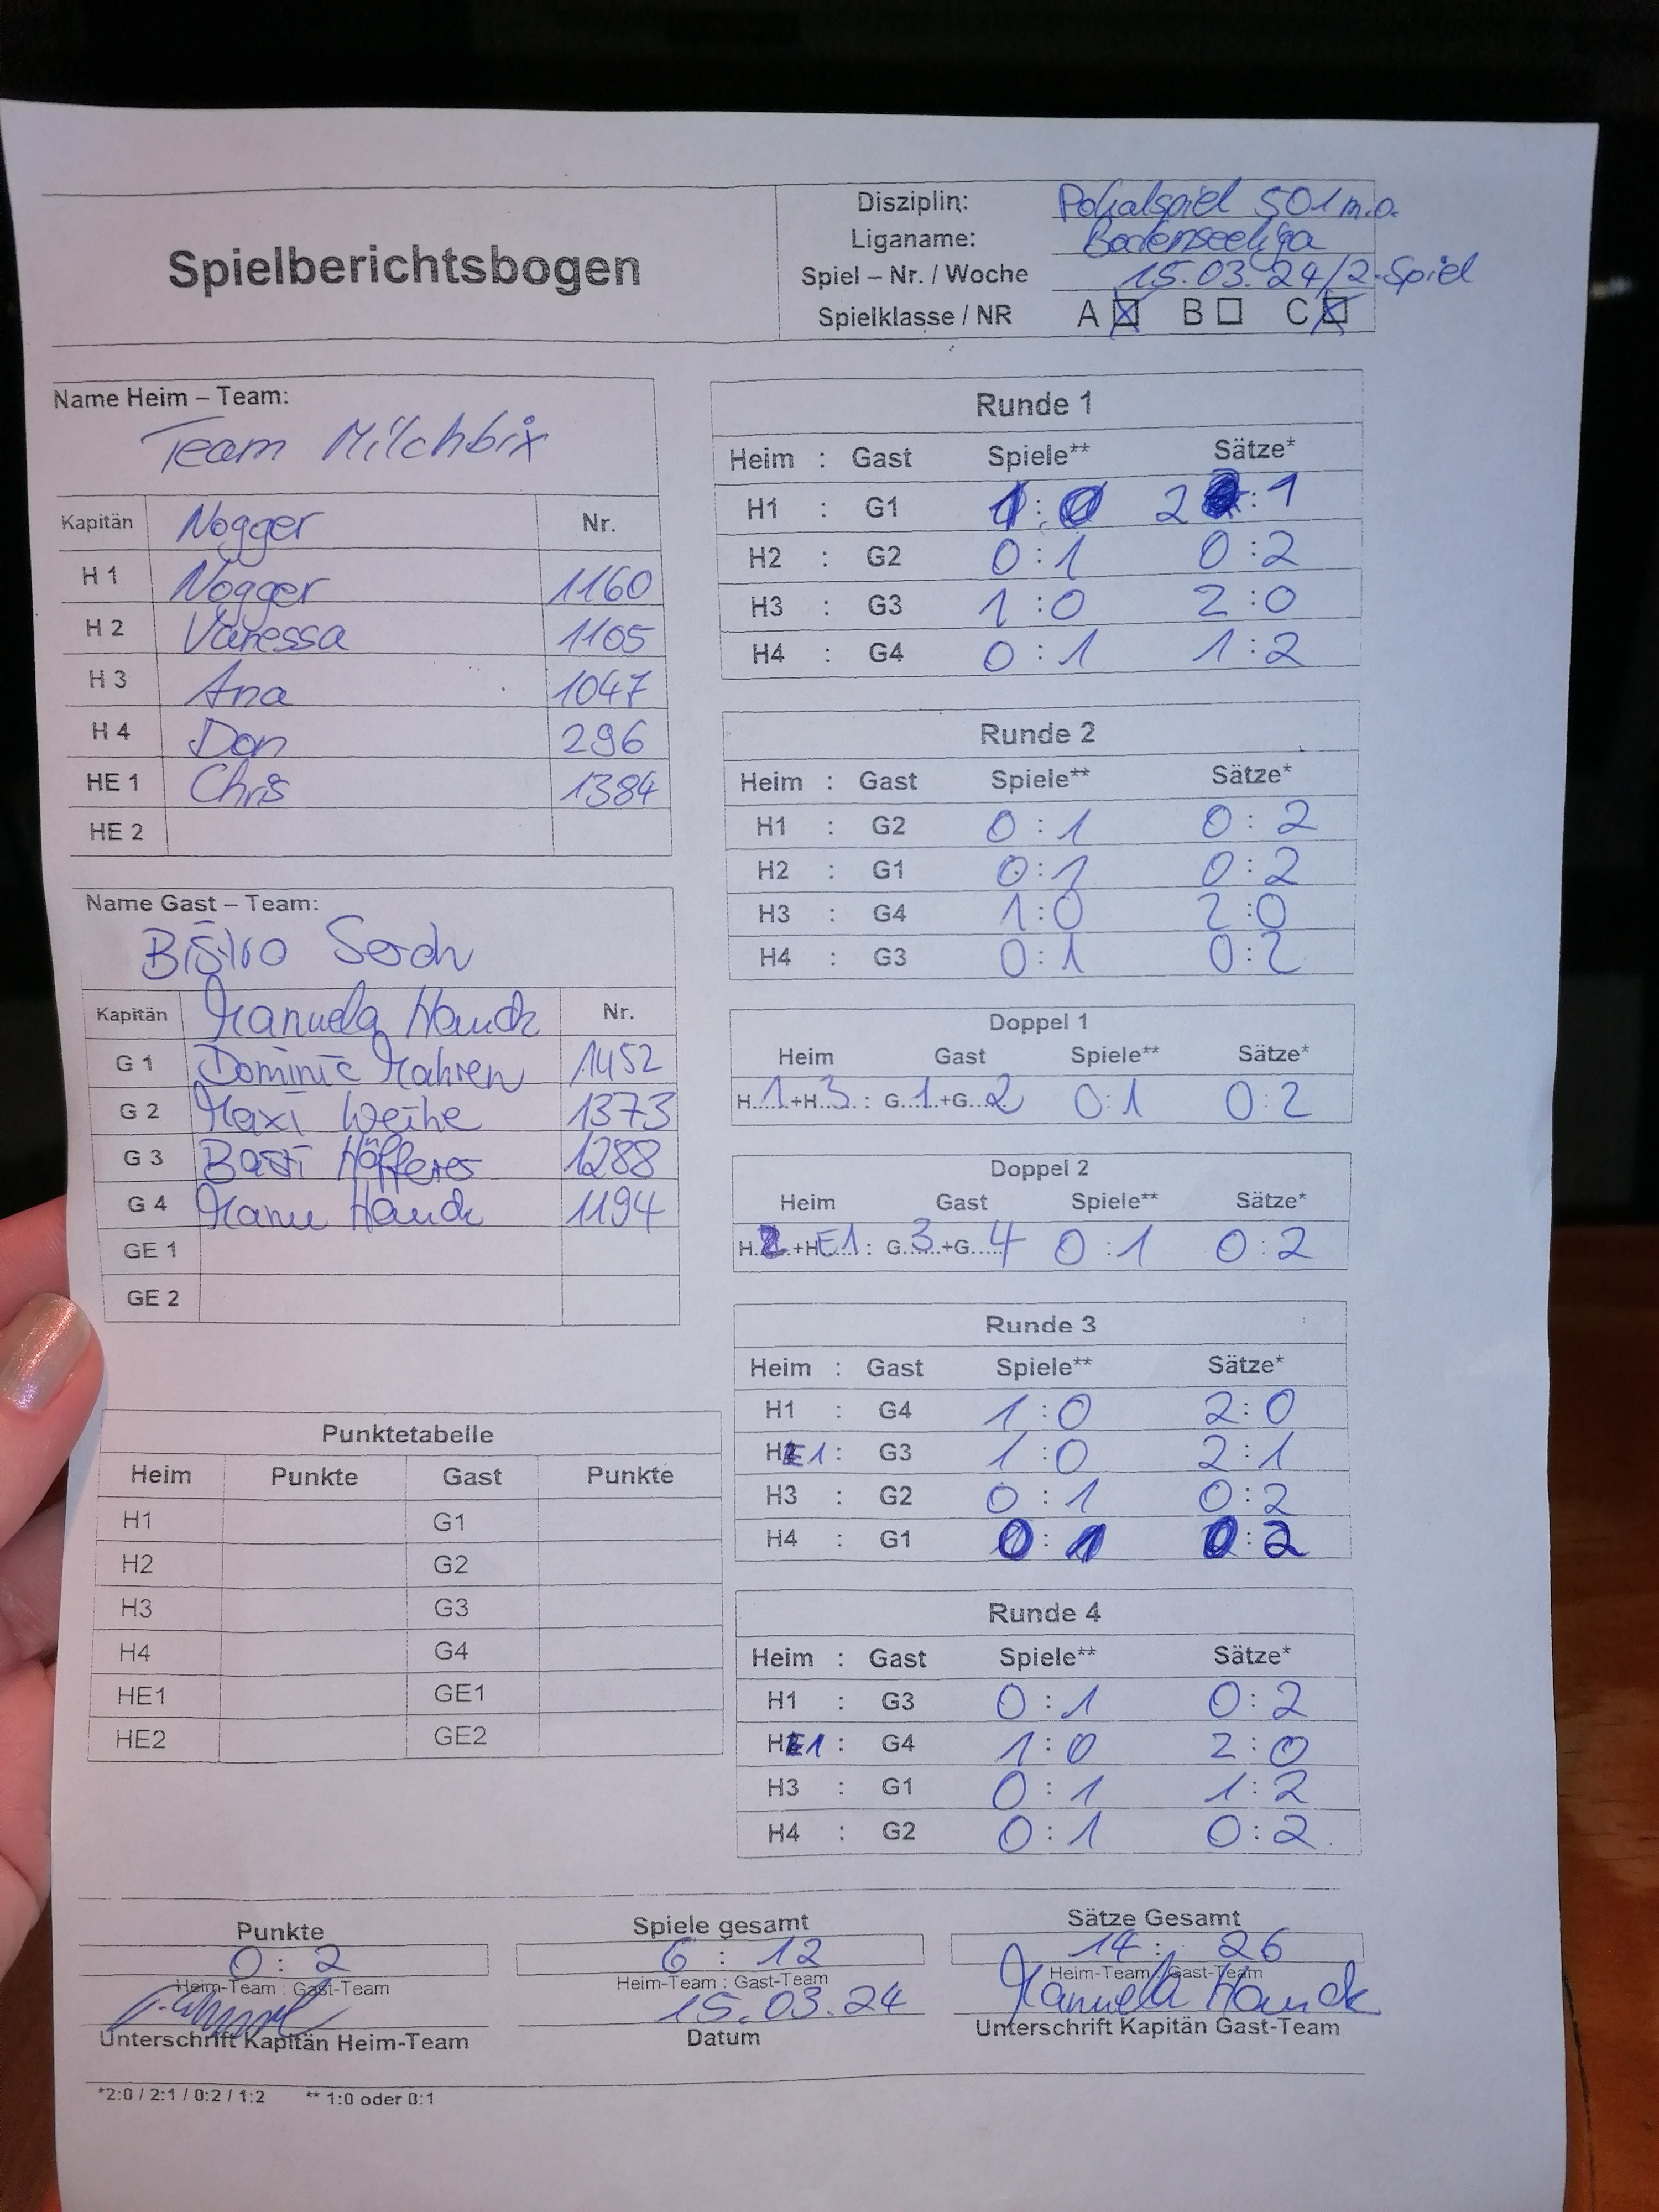 Spielberichtsbogen
Disziplin: Pokalspiel 501 m.o.
Liganame: Bodenseeliga
Spiel – Nr. / Woche 15.03.24/2.Spiel
Spielklasse / NR A B C
Name Heim – Team:
Team Milchbix
Kapitän Nogger Nr.
H 1 Nogger 1160
H 2 Vanessa 1105
H 3 Ana 1047
H 4 Don 296
HE 1 Chris 1384
HE 2
Name Gast – Team:
Bistro
Kapitän Manuela Hauck Nr.
G 1 Dominic 1452
G 2 Maxi Weihe 1373
G 3 Basti 1288
G 4 Manu Hauck 1194
GE 1
GE 2
Punktetabelle
Heim Punkte Gast Punkte
H1 G1
H2 G2
H3 G3
H4 G4
HE1 GE1
HE2 GE2
Runde 1
Heim : Gast Spiele** Sätze*
H1 : G1 1:0 2:1
H2 : G2 0:1 0:2
H3 : G3 1:0 2:0
H4 : G4 0:1 1:2
Runde 2
Heim : Gast Spiele** Sätze*
H1 : G2 0:1 0:2
H2 : G1 0:1 0:2
H3 : G4 1:0 2:0
H4 : G3 0:1 0:2
Doppel 1
Heim Gast Spiele** Sätze*
H..1..+H..3.. : G..1..+G..2 0:1 0:2
Doppel 2
Heim Gast Spiele** Sätze*
H..2..+HE1.. : G..3..+G..4 0:1 0:2
Runde 3
Heim : Gast Spiele** Sätze*
H1 : G4 1:0 2:0
HE1 : G3 1:0 2:1
H3 : G2 0:1 0:2
H4 : G1 0:1 0:2
Runde 4
Heim : Gast Spiele** Sätze*
H1 : G3 0:1 0:2
HE1 : G4 1:0 2:0
H3 : G1 0:1 1:2
H4 : G2 0:1 0:2
Punkte Spiele gesamt Sätze Gesamt
0 : 2 6 : 12 14 : 26
Heim-Team : Gast-Team Heim-Team : Gast-Team Heim-Team : Gast-Team
15.03.24 Manuela Hauck
Unterschrift Kapitän Heim-Team Datum Unterschrift Kapitän Gast-Team
*2:0 / 2:1 / 0:2 / 1:2 ** 1:0 oder 0:1